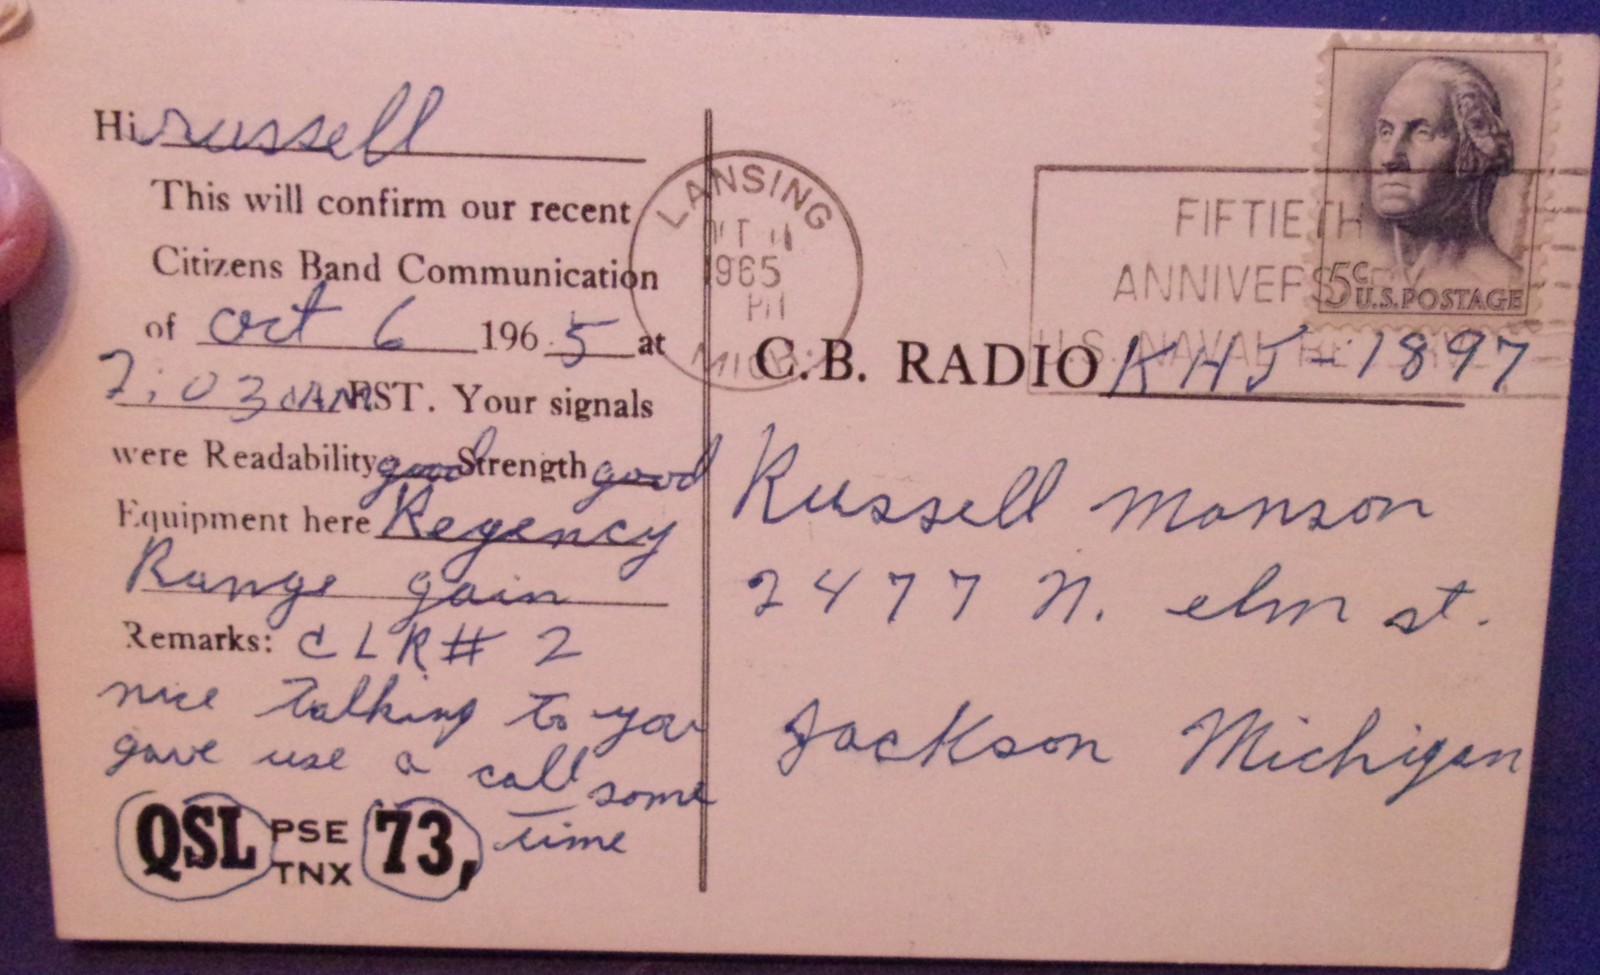 Hi russell
This will confirm our recent
Citizens Band Communication
of oct 6 1965 at
2:03 AM EST. Your signals
were Readability good Strength good
Equipment here Regency
Range gain
Remarks: CLR# 2
nice talking to you
gave use a call some
time
QSL PSE TNX 73,
LANSING
1965
PM
MICH.
FIFTIETH
ANNIVERSARY
U.S. NAVAL RESERVE
5¢ U.S. POSTAGE
C.B. RADIO KHJ-1897
Russell Monson
2477 N. elm st.
Jackson Michigan